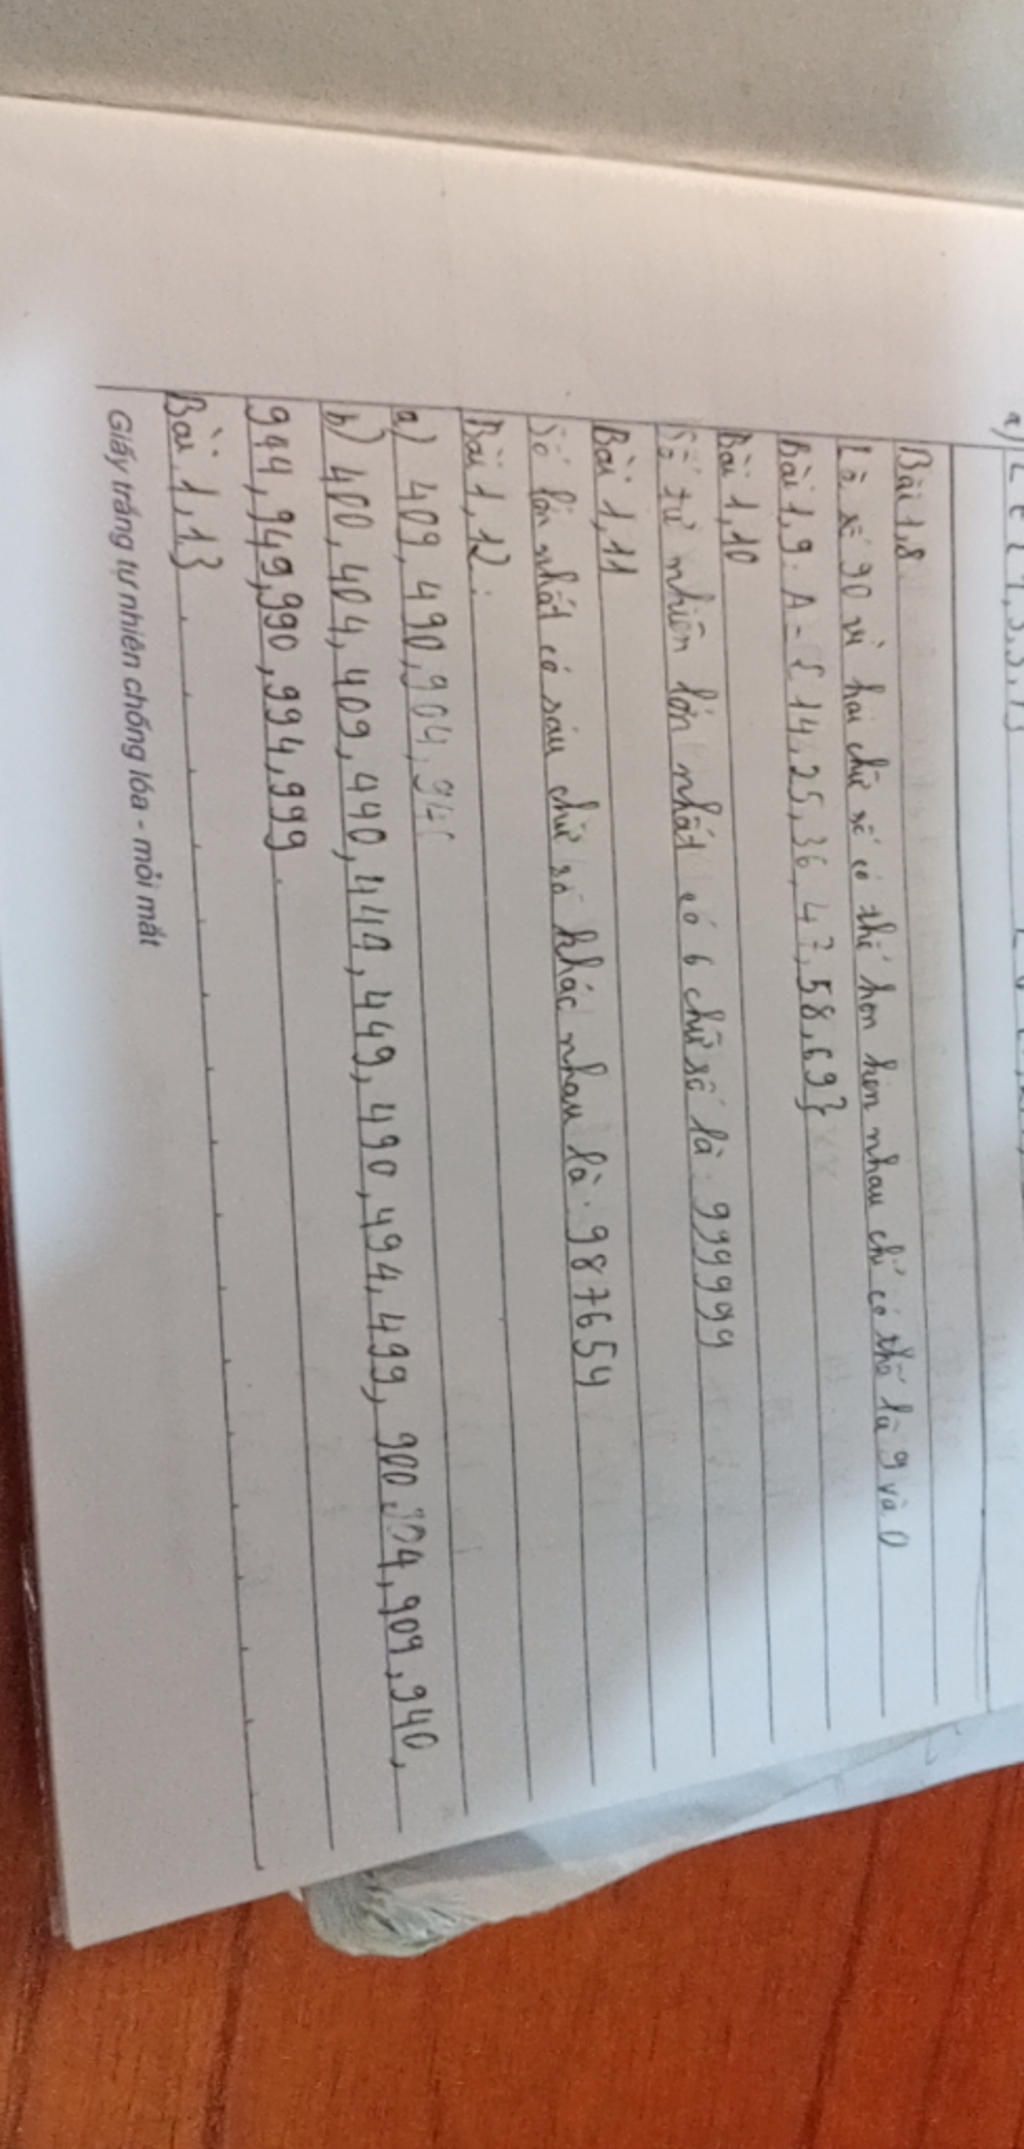 a)
Bài 1,8
Là số 90 vì hai chữ số có thể hơn kém nhau chỉ có thể là 9 và 0
Bài 1,9. A = { 14, 25, 36, 47, 58, 69 }
Bài 1,10
Số tự nhiên lớn nhất có 6 chữ số là: 999999
Bài 1,11
Số lớn nhất có sáu chữ số khác nhau là: 987654
Bài 1,12:
a) 409, 490, 904, 940
b) 400, 404, 409, 440, 444, 449, 490, 494, 499, 900, 904, 909, 940,
944, 949, 990, 994, 999.
Bài 1,13
Giấy trắng tự nhiên chống lóa - mỏi mắt